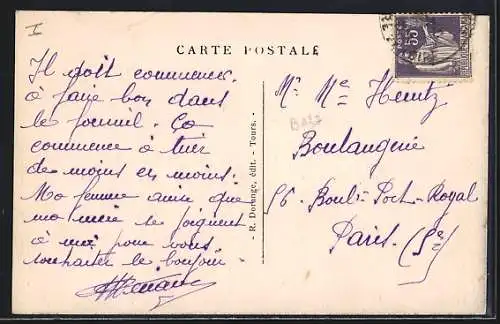 I
CARTE POSTALE
55
Il doit commencer
à faire bon dans
le fournil. Ça
commence à tuer
de moins en moins.
Ma femme ainsi que
ma mère se joignent
à moi pour vous
souhaiter le bonjour
Mr Me Heintz
Boulangerie
56 Boul. Port-Royal
Paris (5e)
- R. Dorange, édit. - Tours. -